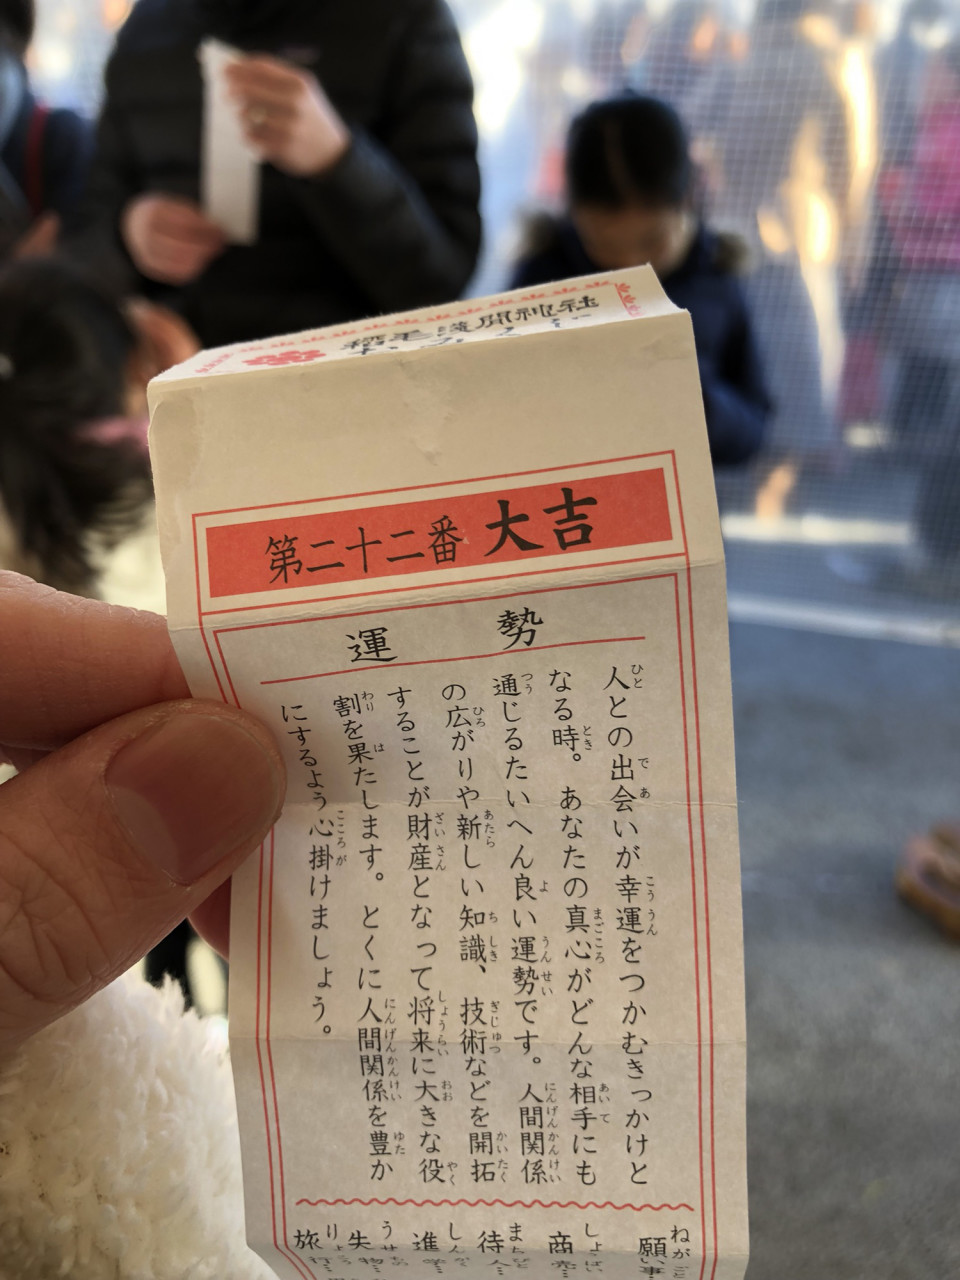 稲毛浅間神社
おみくじ
第二十二番 大吉
運勢
人との出会いが幸運をつかむきっかけと
なる時。あなたの真心がどんな相手にも
通じるたいへん良い運勢です。人間関係
の広がりや新しい知識、技術などを開拓
することが財産となって将来に大きな役
割を果たします。とくに人間関係を豊か
にするよう心掛けましょう。
願い事…
商売…
待人…
進学…
失物…
旅行…